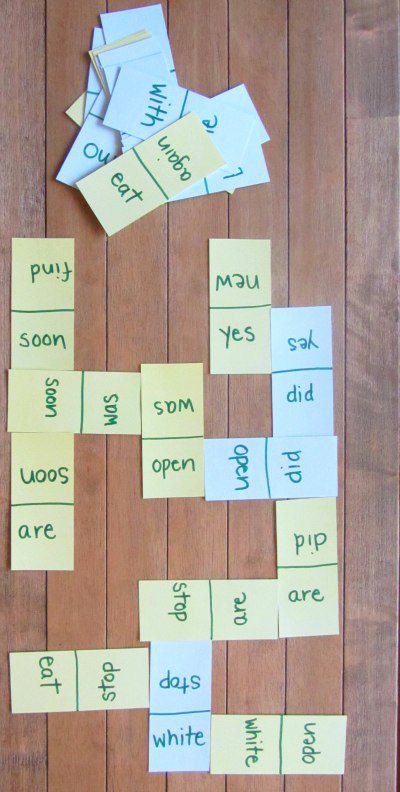 with
no
again
eat
find
soon
new
yes
yes
did
soon
was
was
open
open
did
soon
are
did
are
stop
are
eat
stop
stop
white
white
open